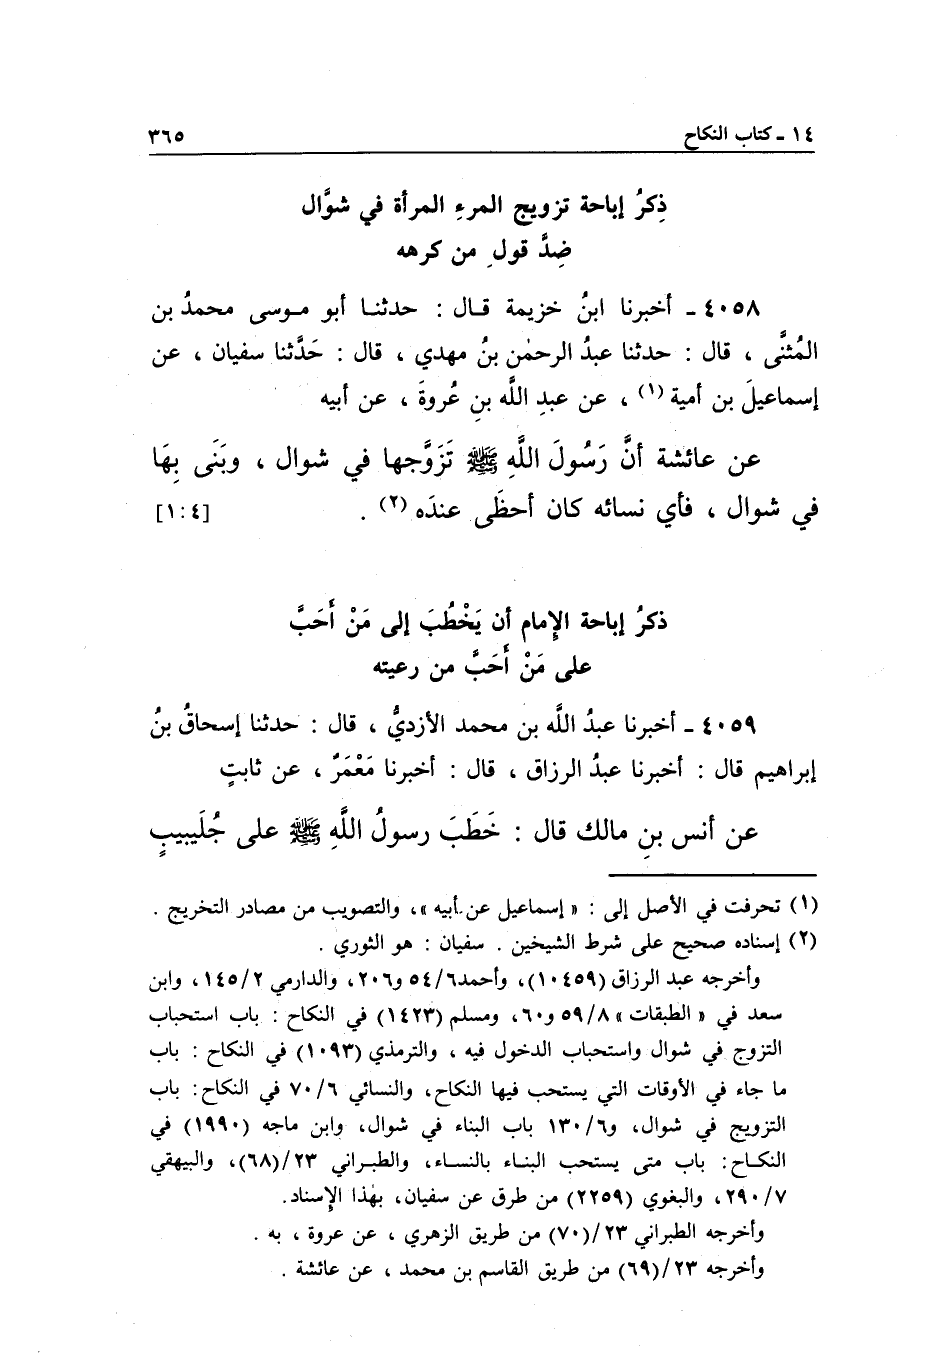 ١٤ - كتاب النكاح ٣٦٥
ذِكرُ إباحة تزويج المرءِ المرأة في شوَّال
ضِدَّ قولِ من كرهه
٤٠٥٨ - أخبرنا ابنُ خزيمة قال : حدثنا أبو موسى محمدُ بن
المُثنَّى ، قال : حدثنا عبدُ الرحمٰن بنُ مهدي ، قال : حَدَّثنا سفيان ، عن
إسماعيلَ بن أمية (١) ، عن عبدِ اللَّه بنِ عُروةَ ، عن أبيه
عن عائشة أنَّ رَسُولَ اللَّهِ ﷺ تَزَوَّجها في شوال ، وبَنَى بِهَا
في شوال ، فأي نسائه كان أحظَى عندَه (٢) . [٤ : ١]
ذكرُ إباحة الإِمام أن يَخْطُبَ إلى مَنْ أَحَبَّ
على مَنْ أَحَبَّ من رعيته
٤٠٥٩ - أخبرنا عبدُ اللَّه بن محمد الأزديُّ ، قال : حدثنا إسحاقُ بنُ
إبراهيم قال : أخبرنا عبدُ الرزاق ، قال : أخبرنا مَعْمَرٌ ، عن ثابتٍ
عن أنس بنِ مالك قال : خَطَبَ رسولُ اللَّهِ ﷺ على جُلَيبيبٍ
(١) تحرفت في الأصل إلى : « إسماعيل عن أبيه »، والتصويب من مصادر التخريج .
(٢) إسناده صحيح على شرط الشيخين . سفيان : هو الثوري .
وأخرجه عبد الرزاق (١٠٤٥٩)، وأحمد ٥٤/٦ و٢٠٦، والدارمي ١٤٥/٢، وابن
سعد في « الطبقات » ٥٩/٨ و٦٠، ومسلم (١٤٢٣) في النكاح : باب استحباب
التزوج في شوال واستحباب الدخول فيه ، والترمذي (١٠٩٣) في النكاح : باب
ما جاء في الأوقات التي يستحب فيها النكاح، والنسائي ٧٠/٦ في النكاح: باب
التزويج في شوال، و١٣٠/٦ باب البناء في شوال، وابن ماجه (١٩٩٠) في
النكاح: باب متى يستحب البناء بالنساء، والطبراني ٢٣/(٦٨)، والبيهقي
٢٩٠/٧، والبغوي (٢٢٥٩) من طرق عن سفيان، بهٰذا الإِسناد.
وأخرجه الطبراني ٢٣/(٧٠) من طريق الزهري ، عن عروة ، به .
وأخرجه ٢٣/(٦٩) من طريق القاسم بن محمد ، عن عائشة .